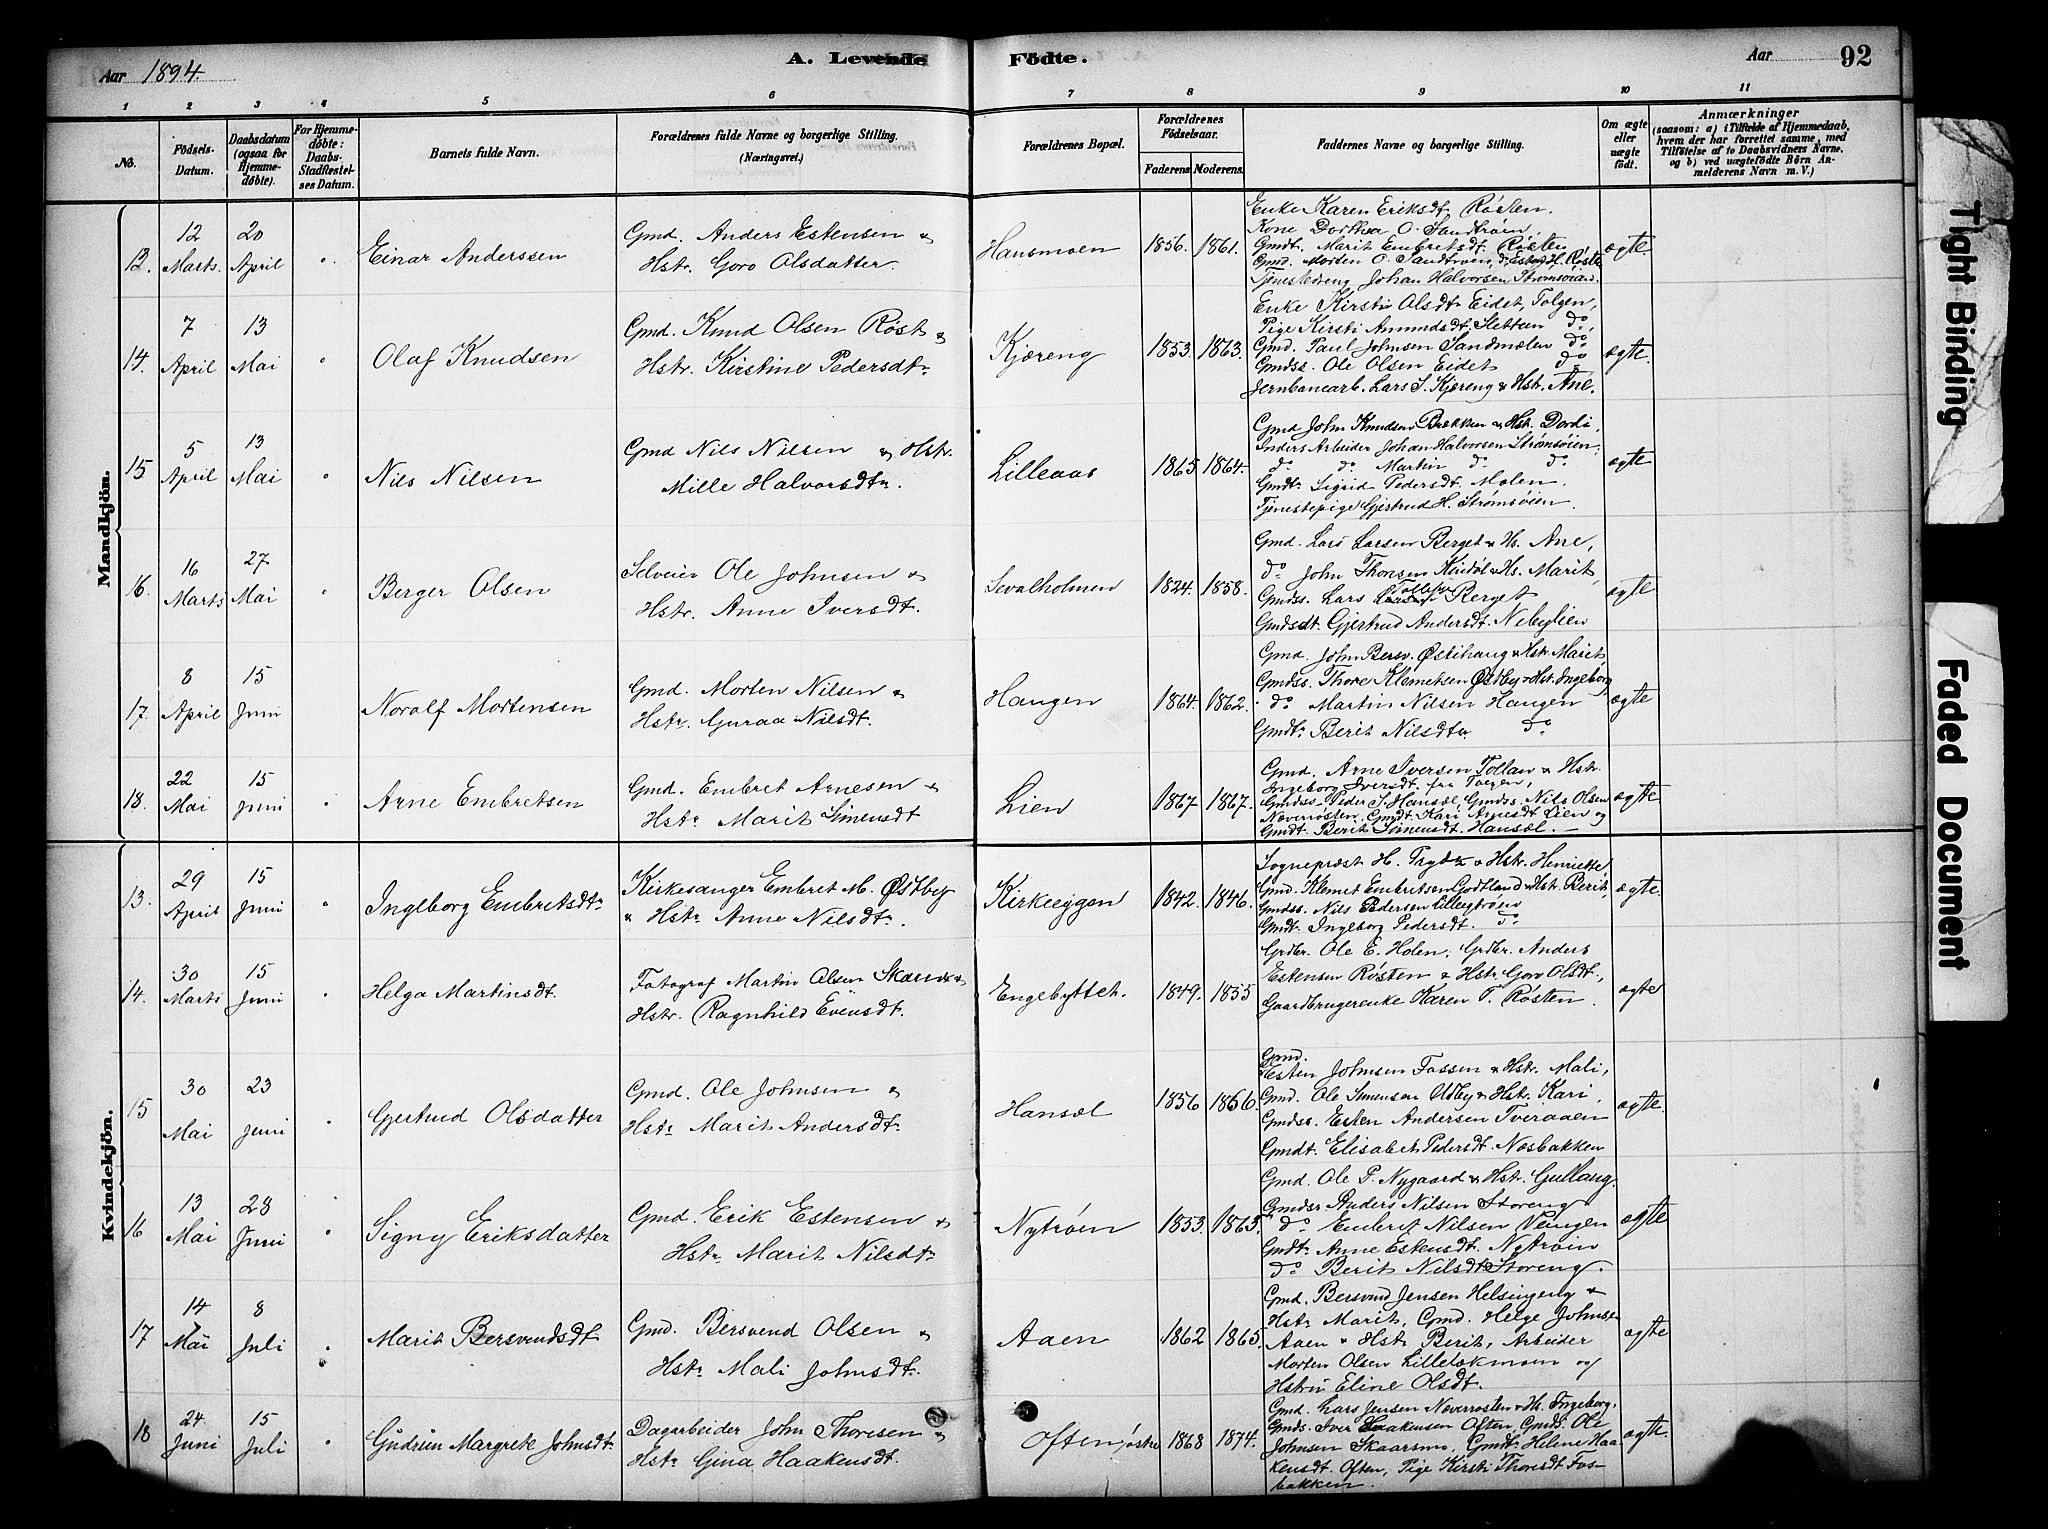 Aar 1894.
A. Levende Födte.
Aar
92
1 2 3 4 5 6 7 8 9 10 11
No.
Födsels-Datum.
Daabsdatum (ogsaa for Hjemmedöbte).
For Hjemmedöbte: Daabs-Stadfæstelses Datum.
Barnets fulde Navn.
Forældrenes fulde Navne og borgerlige Stilling. (Næringsvei.)
Forældrenes Bopæl.
Forældrenes Födselsaar.
Faderens. Moderens.
Faddernes Navne og borgerlige Stilling.
Om ægte eller uægte födt.
Anmærkninger
(saasom: a) i Tilfælde af Hjemmedaab,
hvem der har forrettet samme, med
Tilföielse af to Daabsvidners Navne,
og b) ved uægtefödte Börn Anmelderens Navn m. V.)
Mandkjön.
13. 12 Marts. 20 April " Einar Anderssen
Gmd. Anders Estensen &
Hstr. Goro Olsdatter.
Hansmoen 1856. 1861.
Enke Karen Eriksdt. Røsten.
Kone Dorthea O. Sandtrøen,
Gmdt. Marit Embretsdt. Røsten
Gmd. Morten O. Sandtrøen, do Esten H. Røste
Tjenestedreng Johan Halvorsen Strømsøien.
ægte.
14. 7 April 13 Mai " Olaf Knudsen
Gmd. Knud Olsen Røst &
Hstr. Kirstine Pedersdtr
Kjæreng 1853. 1863.
Enke Kirsti Olsdtr Eidet, Tolgen,
Pige Kirsti Amundsdt. Sletten do,
Gmd. Paul Johnsen Sandmælen do
Gmdss. Ole Olsen Eidet do
Jernbanearb. Lars S. Kjæreng & Hstr. Ane.
ægte.
15 5 April 13 Mai " Nils Nilsen
Gmd Nils Nilsen & Hstr.
Mille Halvorsdtr.
Lilleaas 1865 1864.
Gmd John Knudsen Brækken & Hst. Dordi,
Inders Arbeider Johan Halvorsen Strømsøien,
do do Martin do do
Gmdtr Sigrid Pedersdt. Molen.
Tjenestepige Gjertrud H. Strømsøien.
ægte
16. 16 Marts 27 Mai " Berger Olsen
Selveier Ole Johnsen &
Hstr. Anne Iversdt.
Sevalholmen 1824. 1858.
Gmd. Lars Larsen Berget & H. Ane,
do John Thoresen Kindøl & Hs. Marit,
Gmdss. Lars Tollefsen Berget
Gmdsdt. Gjertrud Andersdt. Nebylien
ægte
17. 8 April 15 Juni " Noralf Mortensen
Gmd. Morten Nilsen &
Hstr. Guraa Nilsdt.
Haugen 1864. 1862.
Gmd. John Bersv. Østihaug & Hstr. Marit,
Gmdss. Thore Klemetsen Østby & Hst. Ingeborg,
do Martin Nilsen Haugen
Gmdtr Berit Nilsdtr. do
ægte
18. 22 Mai 15 Juni " Arne Embretsen
Gmd. Embret Arnesen &
Hstr Marit Simensdt
Lien 1867 1867.
Gmd. Arne Iversen Tollan & Hstr.
Ingeborg Iversdt. fra Tolgen,
Gmdss. Peder S. Hansæl, Gmdss. Nils Olsen
Næverrøsten, Gmdt. Kari Arnesdt Lien og
Gmdt. Berit Simensdt. Hansæl. —
ægte
Kvindekjön.
13. 29 April 15 Juni " Ingeborg Embretsdtr
Kirkesanger Embret M. Østbey
& Hstr Anne Nilsdtr.
Kirkeeggen 1842. 1846.
Sognepræst H. Trydtz & Hstr. Henriette,
Gmd. Klemet Embretsen Godtland & Hstr. Berit,
Gmdss. Nils Pedersen Lilleeggtrøen
Gmdt. Ingeborg Pedersdt. do
ægte.
14. 30 Marts 15 Juni " Helga Martinsdt.
Fotograf Martin Olsen Skancke &
Hstr. Ragnhild Evensdt.
Engebyttet. 1849. 1855
Grdbr. Ole E. Holen, Grdbr. Anders
Estensen Røsten & Hstr. Goro Olsdt.,
Gaardbrugerenke Karen T. Røsten.
ægte
15 30 Mai 23 Juni " Gjertrud Olsdatter
Gmd. Ole Johnsen &
Hstr Marit Andersdt.
Hansæl 1856 1866.
Gmd.
Esten Johnsen Fossen & Hstr. Mali,
Gmd. Ole Simensen Udby & Hstr. Kari,
Gmdss. Esten Andersen Tveraaen
Gmdt. Elisabet Pedersdt. Næsbakken
ægte.
16 13 Mai 28 Juni " Signy Eriksdatter
Gmd. Erik Estensen &
Hstr Marit Nilsdtr
Nytrøen 1853. 1863.
Gmd. Ole P. Nygaard & Hstr. Gullaug.
Gmdss Anders Nilsen Storeng
do Embret Nilsen Vingen
Gmdtr Anne Estensdt. Nytrøin
do Berit Nilsdt Storeng.
ægte
17 14 Mai 8 Juli " Marit Bersvendsdt
Gmd. Bersvend Olsen &
Hstr Mali Johnsdt.
Aaen 1862 1865.
Gmd. Bersvend Jensen Helsingerby &
Hstr Marit, Gmd. Helge Johnsen
Aaen & Hstr Berit, Arbeider
Morten Olsen Lilleløkmoen og
Hstru Eline Olsdt.
ægte
18 24 Juni 15 Juli " Gudrun Margrete Johnsdt.
Dagarbeider John Thoresen &
Hstr Gina Haakensdt.
Often, østre 1868 1874.
Gmd. Lars Jensen Næverrøsten & Hs. Ingeborg,
Gmds. Iver Haakensen Often, Gmds. Ole
Johnsen Skaarsmo, Gmdtr Helene Haa-
kensdt. Often, Pige Kirsti Thoresdt Fos-
bakken.
ægte.
Tight Binding
Faded Document